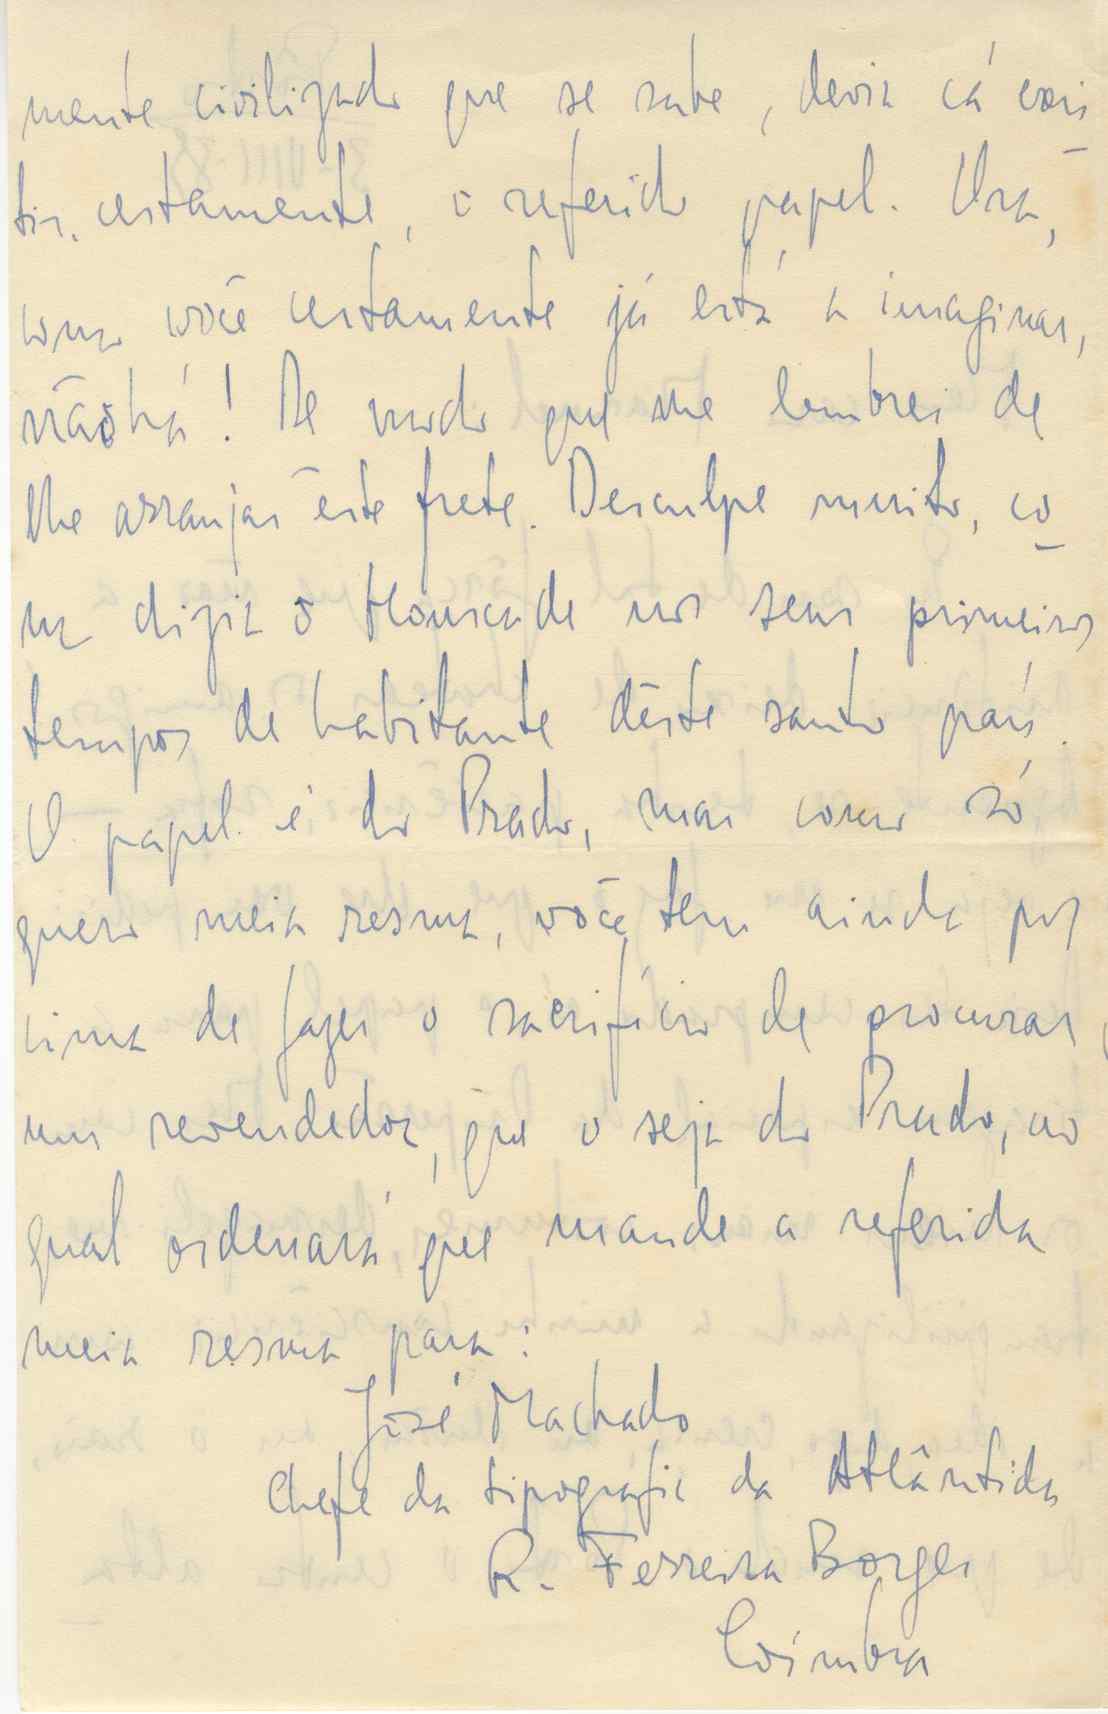 mente civilizado que se sabe, devia cá exis
tir, certamente, o referido papel. Ora,
como você certamente já está a imaginar,
não há! De modo que me lembrei de
lhe arranjar êste frete. Desculpe muito, co
mo dizia o Hourcade nos seus primeiros
tempos de habitante dêste santo país.
O papel é do Prado, mas como só
quero meia resma, você tem ainda por
cima de fazer o sacrifício de procurar
um revendedor, que o seja do Prado, ao
qual ordenará que mande a referida
meia resma para:
José Machado
Chefe da tipografia da Atlântida
R. Ferreira Borges
Coimbra